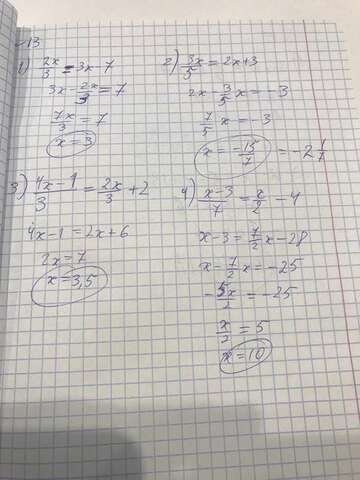 13
1) 2x/3 = 3x - 7
3x - 2x/3 = 7
7x/3 = 7
x = 3
2) 3x/5 = 2x + 3
2x - 3/5 x = -3
7/5 x = -3
x = -15/7 = -2 1/7
3) 4x - 1/3 = 2x/3 + 2
4x - 1 = 2x + 6
2x = 7
x = 3,5
4) x - 3/7 = x/2 - 4
x - 3 = 7/2 x - 28
x - 7/2 x = -25
-5x/2 = -25
x/2 = 5
x = 10